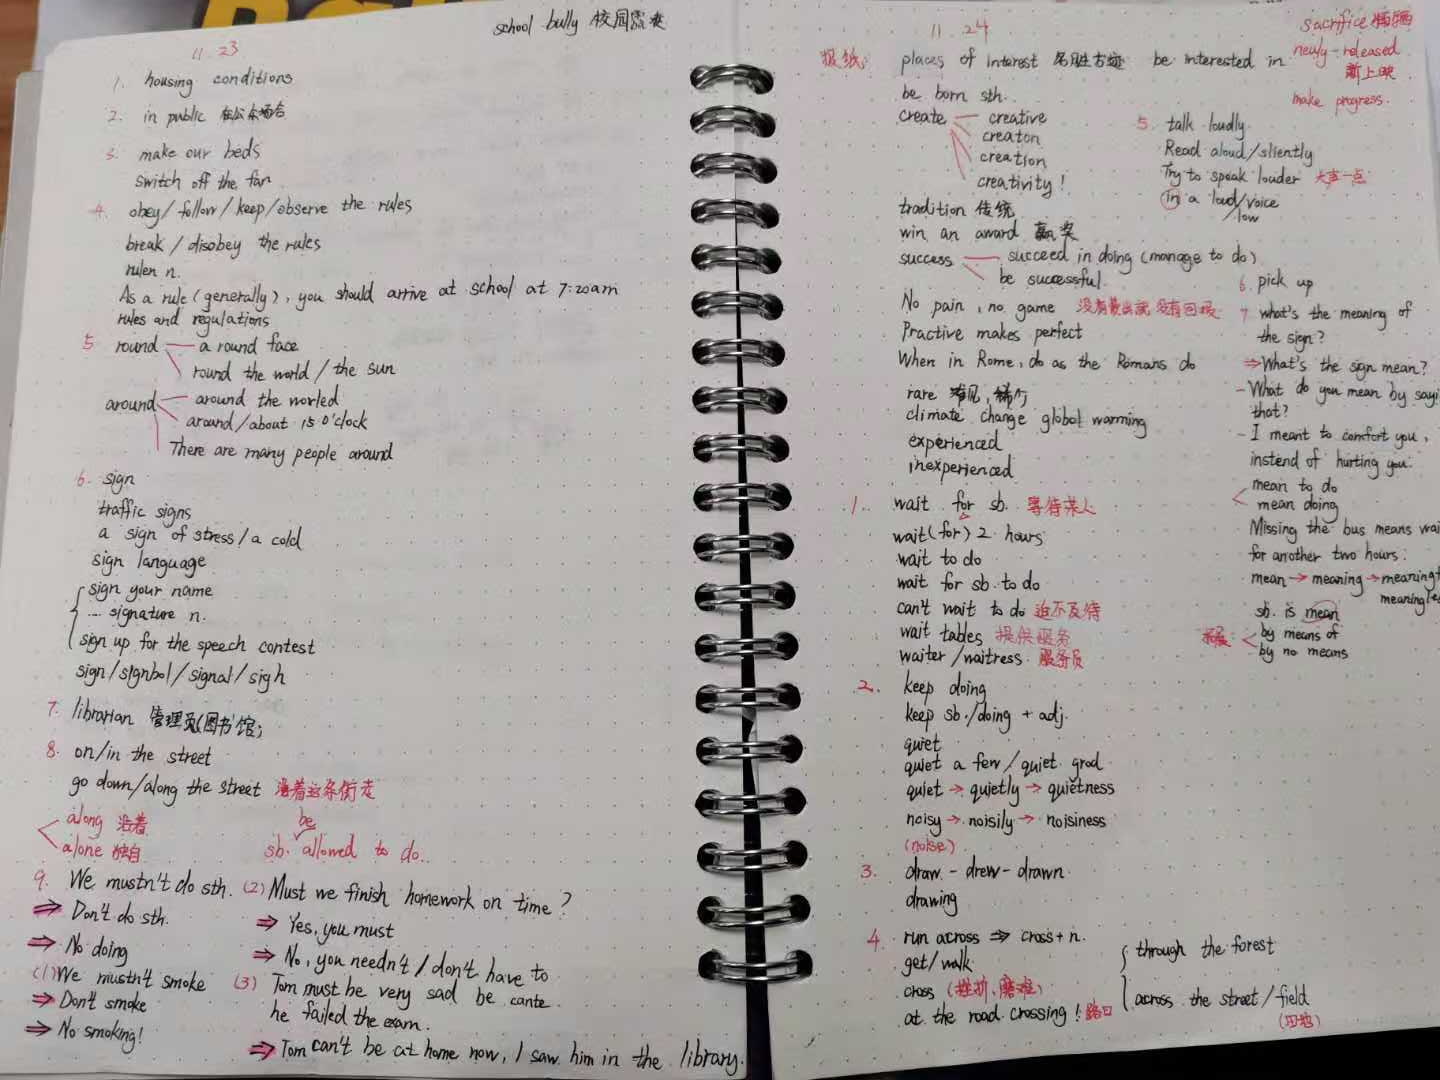 school bully 校园霸凌
11.23
1. housing conditions
2. in public 在公众场合
3. make our beds
switch off the fan
4. obey/follow/keep/observe the rules
break/disobey the rules
rulen n.
As a rule (generally), you should arrive at school at 7:20am
rules and regulations
5. round — a round face
round the world / the sun
around — around the worled
around/about 15 o'clock
There are many people around
6. sign
traffic signs
a sign of stress/a cold
sign language
sign your name
... signature n.
sign up for the speech contest
sign/signbol/signal/sigh
7. librarian 管理员(图书馆)
8. on/in the street
go down/along the street 沿着这条街走
along 沿着
alone 独自
be
sb. allowed to do.
9. We mustn't do sth.
⇒ Don't do sth.
⇒ No doing
(1) We mustn't smoke
⇒ Don't smoke
⇒ No smoking!
(2) Must we finish homework on time?
⇒ Yes, you must
⇒ No, you needn't/don't have to
(3) Tom must be very sad be cante
he failed the exam.
⇒ Tom can't be at home now, I saw him in the library.
11.24
报纸: places of interest 名胜古迹 be interested in
sacrifice 牺牲
newly-released
新上映
make progress.
be born sth.
create — creative
creaton
creation
creativity!
tradition 传统
win an award 赢奖
success — succeed in doing (manage to do)
be successful.
No pain, no game 没有付出就没有回报
Practive makes perfect
When in Rome, do as the Romans do
rare 罕见,稀有
climate change global warming
experienced
inexperienced
1. wait for sb. 等待某人
wait (for) 2 hours
wait to do
wait for sb. to do
can't wait to do 迫不及待
wait tables 提供服务
waiter/waitress 服务员
2. keep doing
keep sb./doing + adj.
quiet
quiet a few/quiet grod
quiet → quietly → quietness
noisy → noisily → noisiness
(noise)
3. draw - drew - drawn
drawing
4. run across ⇒ cross + n.
get/walk
cross (挫折、磨难)
at the road crossing! 路口
through the forest
across the street/field
(田地)
5. talk loudly
Read aloud/sliently
Try to speak louder 大声一点
in a loud/voice
/low
6. pick up
7. what's the meaning of
the sign?
⇒ What's the sign mean?
- What do you mean by sayi
that?
- I meant to comfort you,
instend of hurting you.
mean to do
mean doing
Missing the bus means wai
for another two hours.
mean → meaning → meaning
meaning
sb. is mean
拓展: by means of
by no means